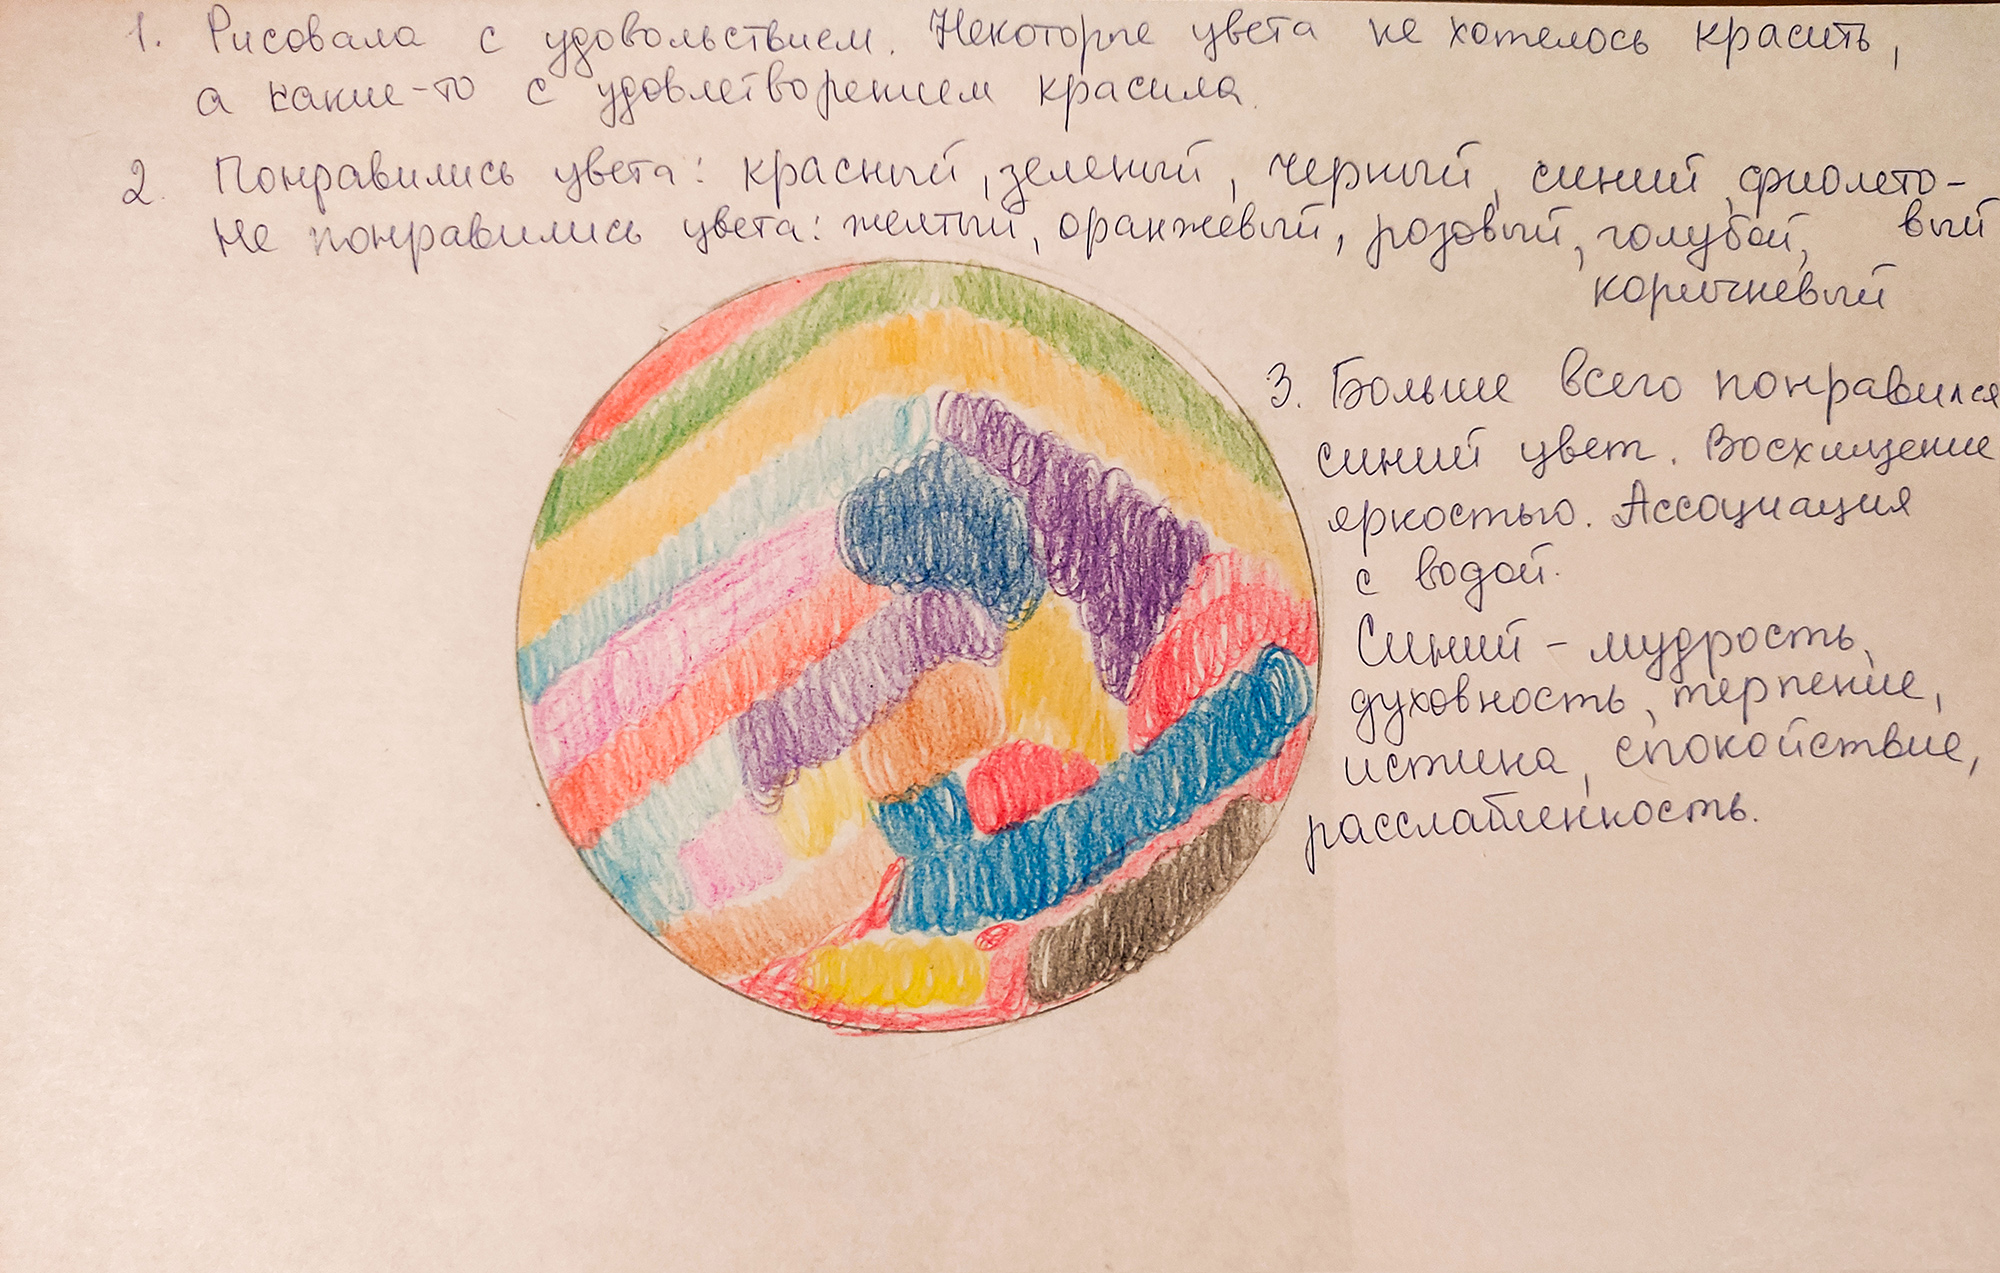 1. Рисовала с удовольствием. Некоторые цвета не хотелось красить,
а какие-то с удовлетворением красила.
2. Понравились цвета: красный, зеленый, черный, синий, фиолето-
вый
Не понравились цвета: желтый, оранжевый, розовый, голубой,
коричневый
3. Больше всего понравился
синий цвет. Восхищение
яркостью. Ассоциация
с водой.
Синий - мудрость,
духовность, терпение,
истина, спокойствие,
расслабленность.